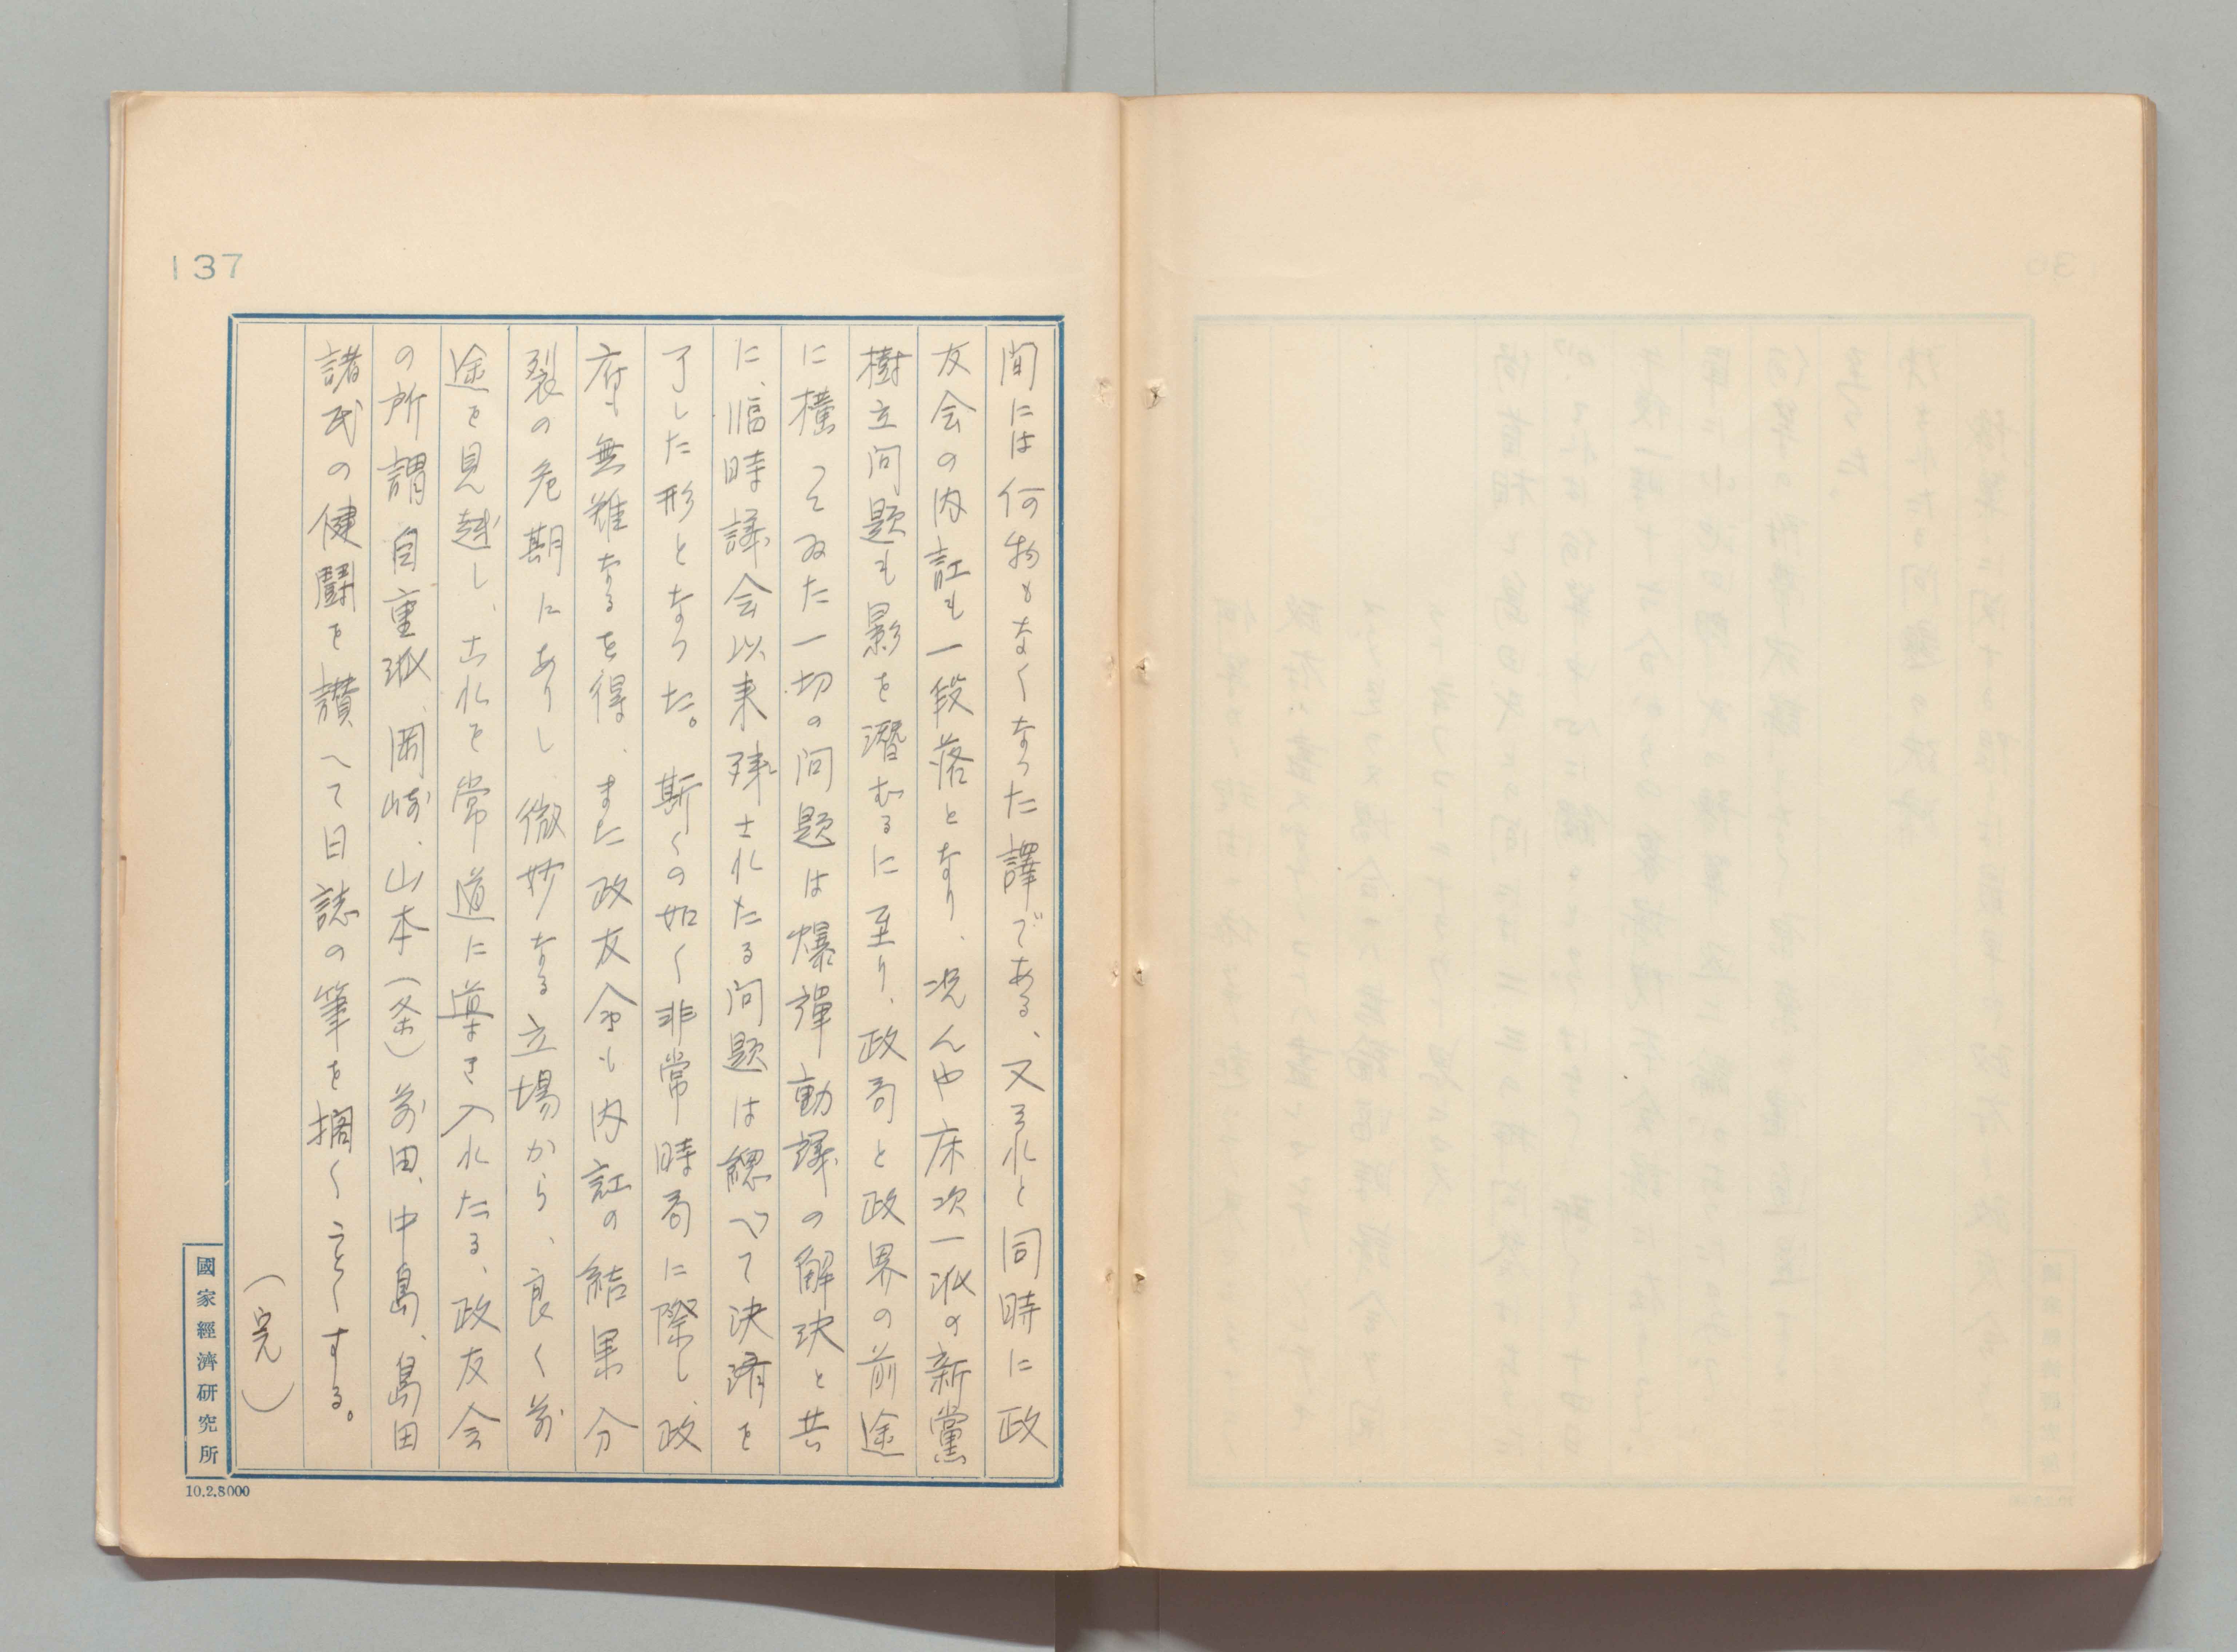 137
間には何物もなくなった譯である、又それと同時に政
友会の内訌も一段落となり、況んや床次一派の新黨
樹立问題も影を潛むるに至り、政局と政界の前途
に橫つてゐた一切の问題は爆彈動議の解決と共
に、臨時議会以来残されたる问題は總べて決済を
了した形となつた。斯くの如く非常時局に際し、政
府も無難なるを得、また政友会も内訌の結果分
裂の危期にありし微妙なる立場から、良く前
途を見越し、これを常道に導き入れたる、政友会
の所謂自重派、岡崎、山本(条)前田、中島、島田
諸氏の健闘を讃へて日誌の筆を擱くことゝする。
(完)
國家經濟研究所
10.2.8000